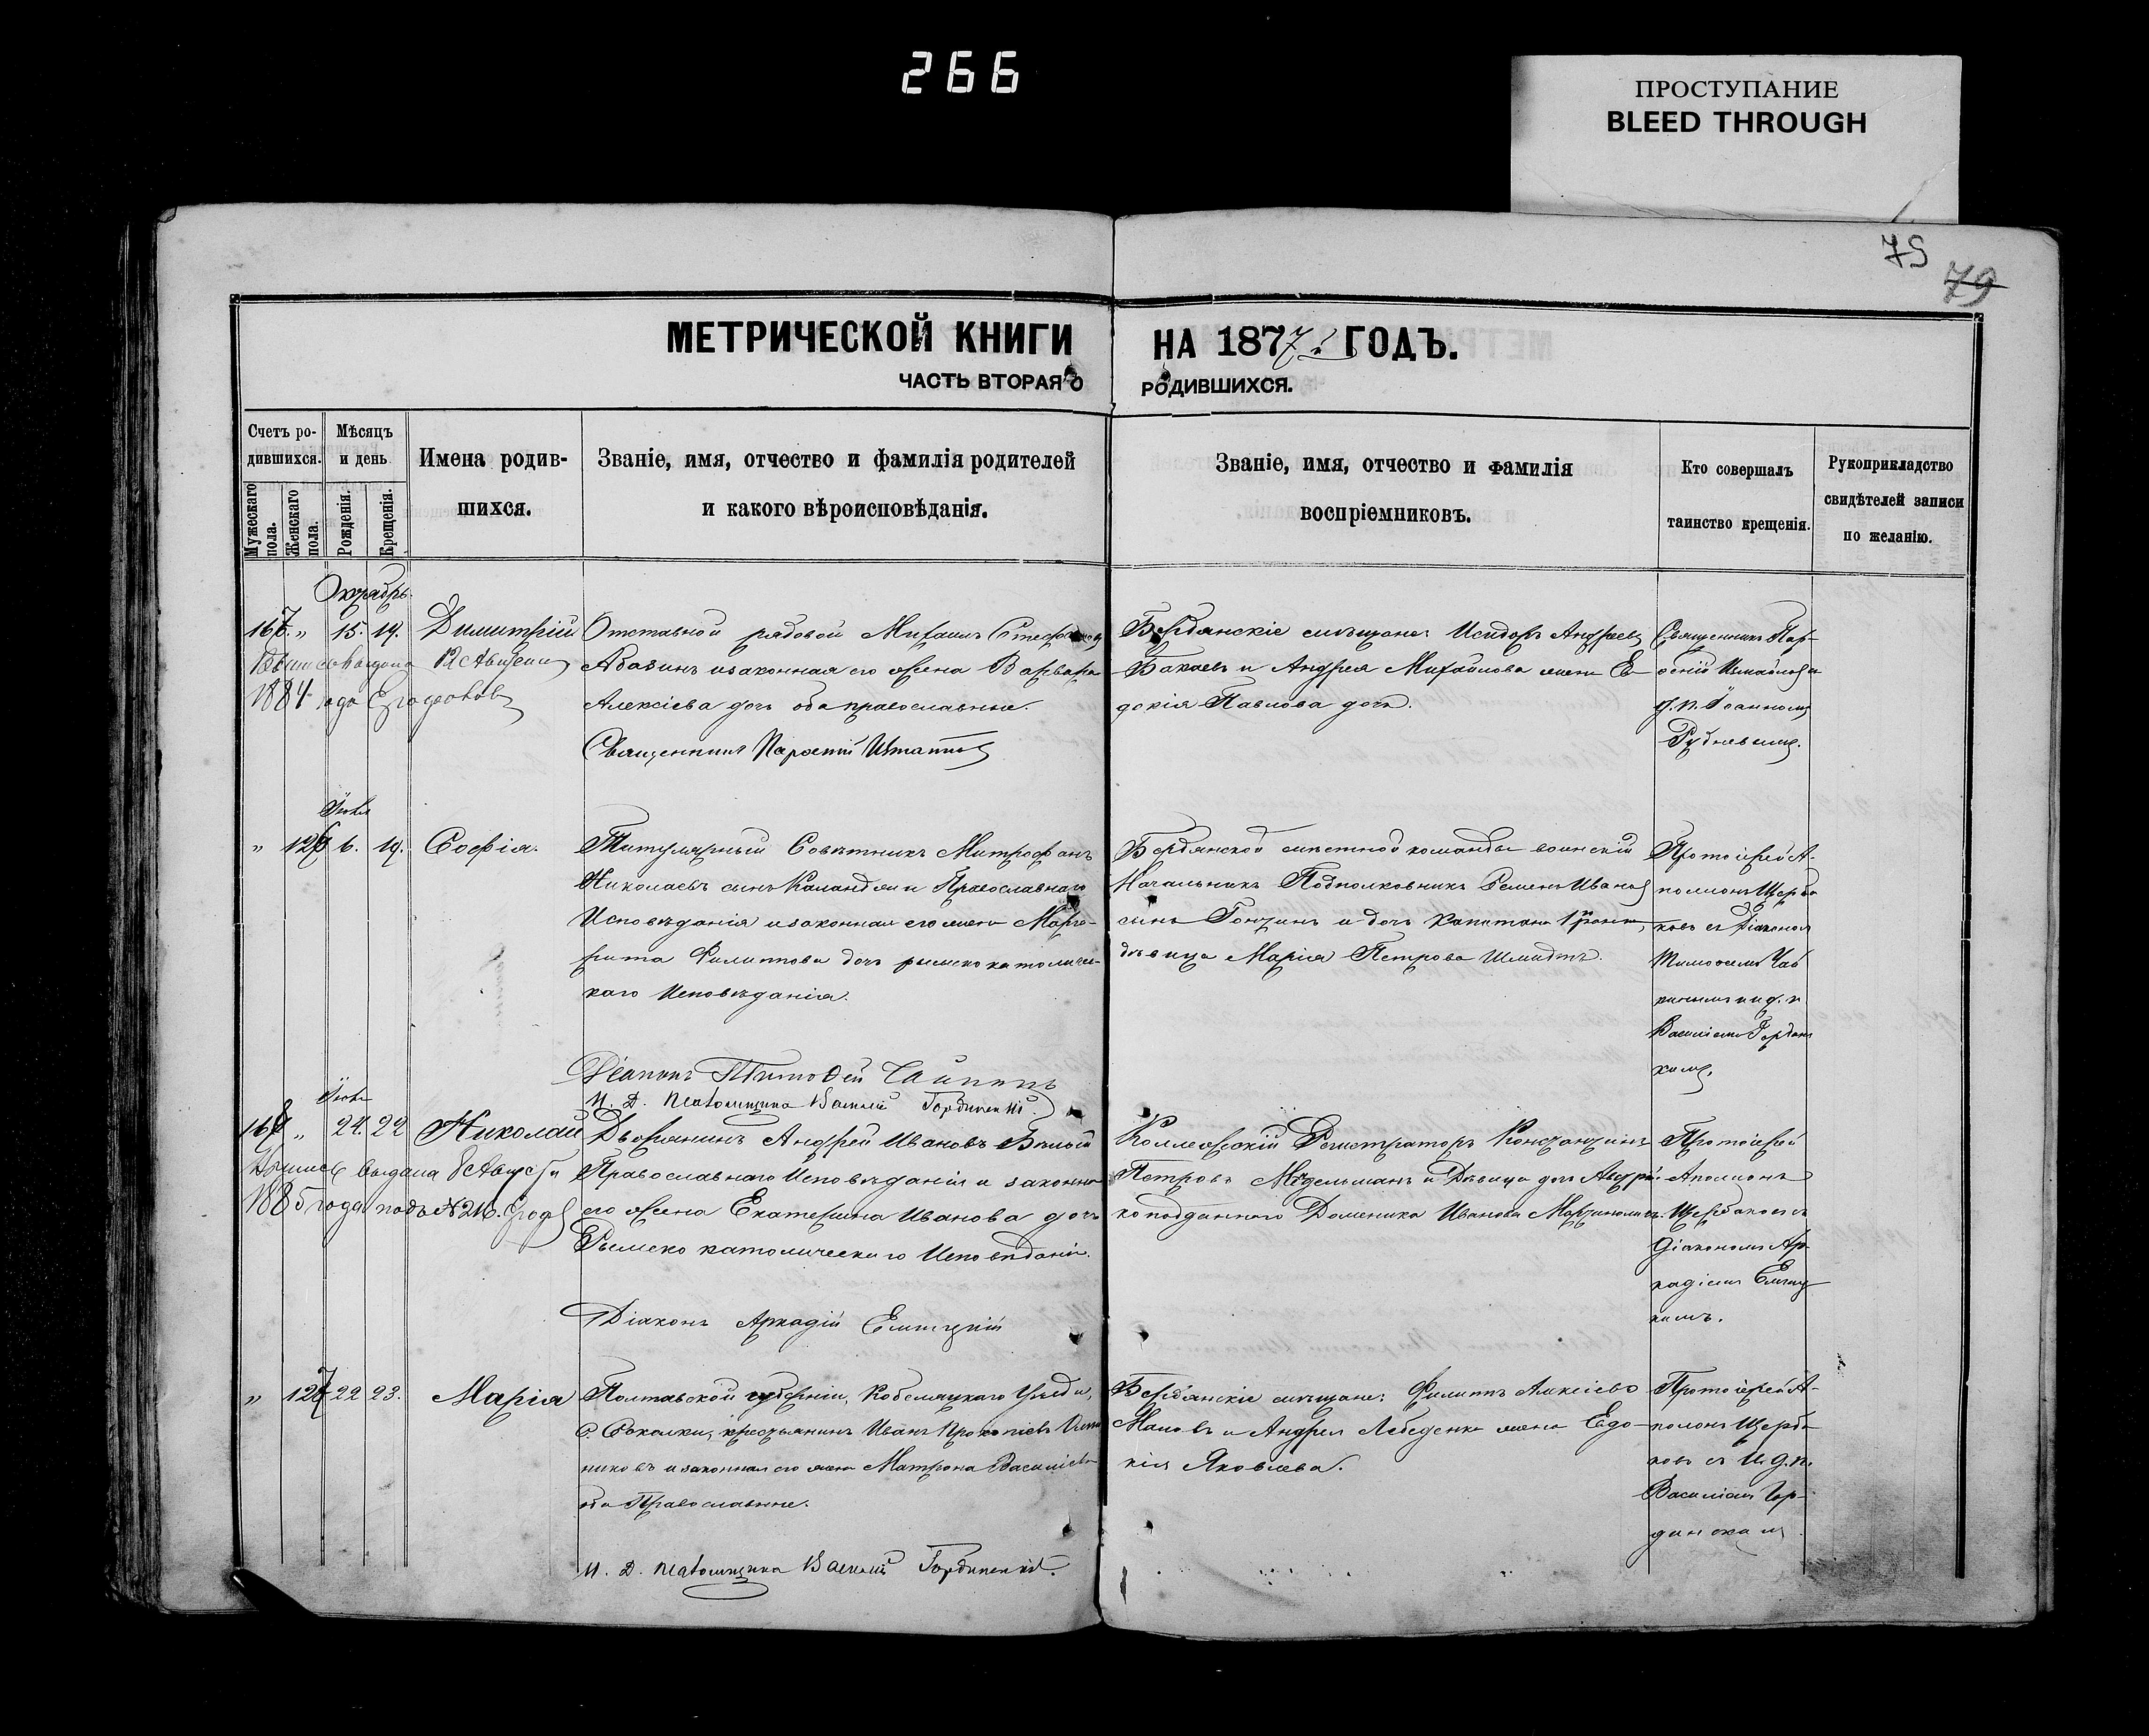 266
ПРОСТУПАНИЕ
BLEED THROUGH
75
79
МЕТРИЧЕСКОЙ КНИГИ НА 1877 й ГОДЪ.
ЧАСТЬ ВТОРАЯ О РОДИВШИХСЯ.
Счетъ ро-
дившихся.
Мужескаго пола.
Женскаго пола.
Мѣсяцъ
и день
Рожденія.
Крещенія.
Имена родив-
шихся.
Званіе, имя, отчество и фамилія родителей
и какого вѣроисповѣданія.
Званіе, имя, отчество и фамилія
воспріемниковъ.
Кто совершалъ
таинство крещенія.
Рукоприкладство
свидѣтелей записи
по желанію.
Октябрь.
167. „ 15. 19. Димитрій
1884 года
Отставной рядовой Михаилъ
и законная его жена Варвара
Алексіева дочь оба православные.
Священникъ
Бердянскіе мѣщане: Исидоръ Андреевъ
Бакаевъ и Андрея Михайлова жена Ев-
докія Павлова дочь.
Священникъ Пар-
и. д. п. Іоанномъ
Рудневымъ.
Іюля
„ 126 6. 19. Софія.
Титулярный Совѣтникъ Митрофанъ
Николаевъ сынъ и Православнаго
Исповѣданія и законная его жена Марга-
рита Филиппова дочь римско католичес-
каго Исповѣданія.
Діаконъ Тимофей Чайкинъ
И. Д. Псаломщика Василій Гординскій.
Бердянской мѣстной команды воинскій
Начальникъ Подполковникъ Семенъ Ивановъ
сынъ и дочь Капитана 1го ранга,
дѣвица Марія Петрова Шмидтъ.
Протоіерей А-
полонъ Щерба
ковъ съ Діаконом
Тимофеемъ Чай
кинымъ и и. д. п.
Василіемъ Гордин
ским.
168 „ 24. 22 Николай
выдана 8 Августа
1885 года подъ № 216.
Дворянинъ Андрей Ивановъ Бѣлый
Православнаго Исповѣданія и законна
его жена Екатерина Иванова дочь
Римско католическаго Исповѣданія.
Діаконъ Аркадій
Коллежскій Регистраторъ Константинъ
Петровъ и Дѣвица дочь Австрій-
ко подданнаго Доменика Иванова
Протоіерей
Аполлонъ
Щербаковъ съ
Діакономъ Ар-
кадіемъ
кимъ.
„ 127 22 23. Марія
Полтавской губерніи, Кобеляцкаго Уѣзда,
С. Соколки, крестьянинъ Иванъ Прокопіевъ
никовъ и законная его жена Матрона Василіева
оба Православные.
И. Д. Псаломщика Василій Гординскій.
Бердянскіе мѣщане: Филиппъ Алексіевъ
и Андрея Лебеденка жена Евдо-
кія Яковлева.
Протоіерей А-
полонъ Щерба
ковъ съ И. д. п.
Василіемъ Гор-
динским